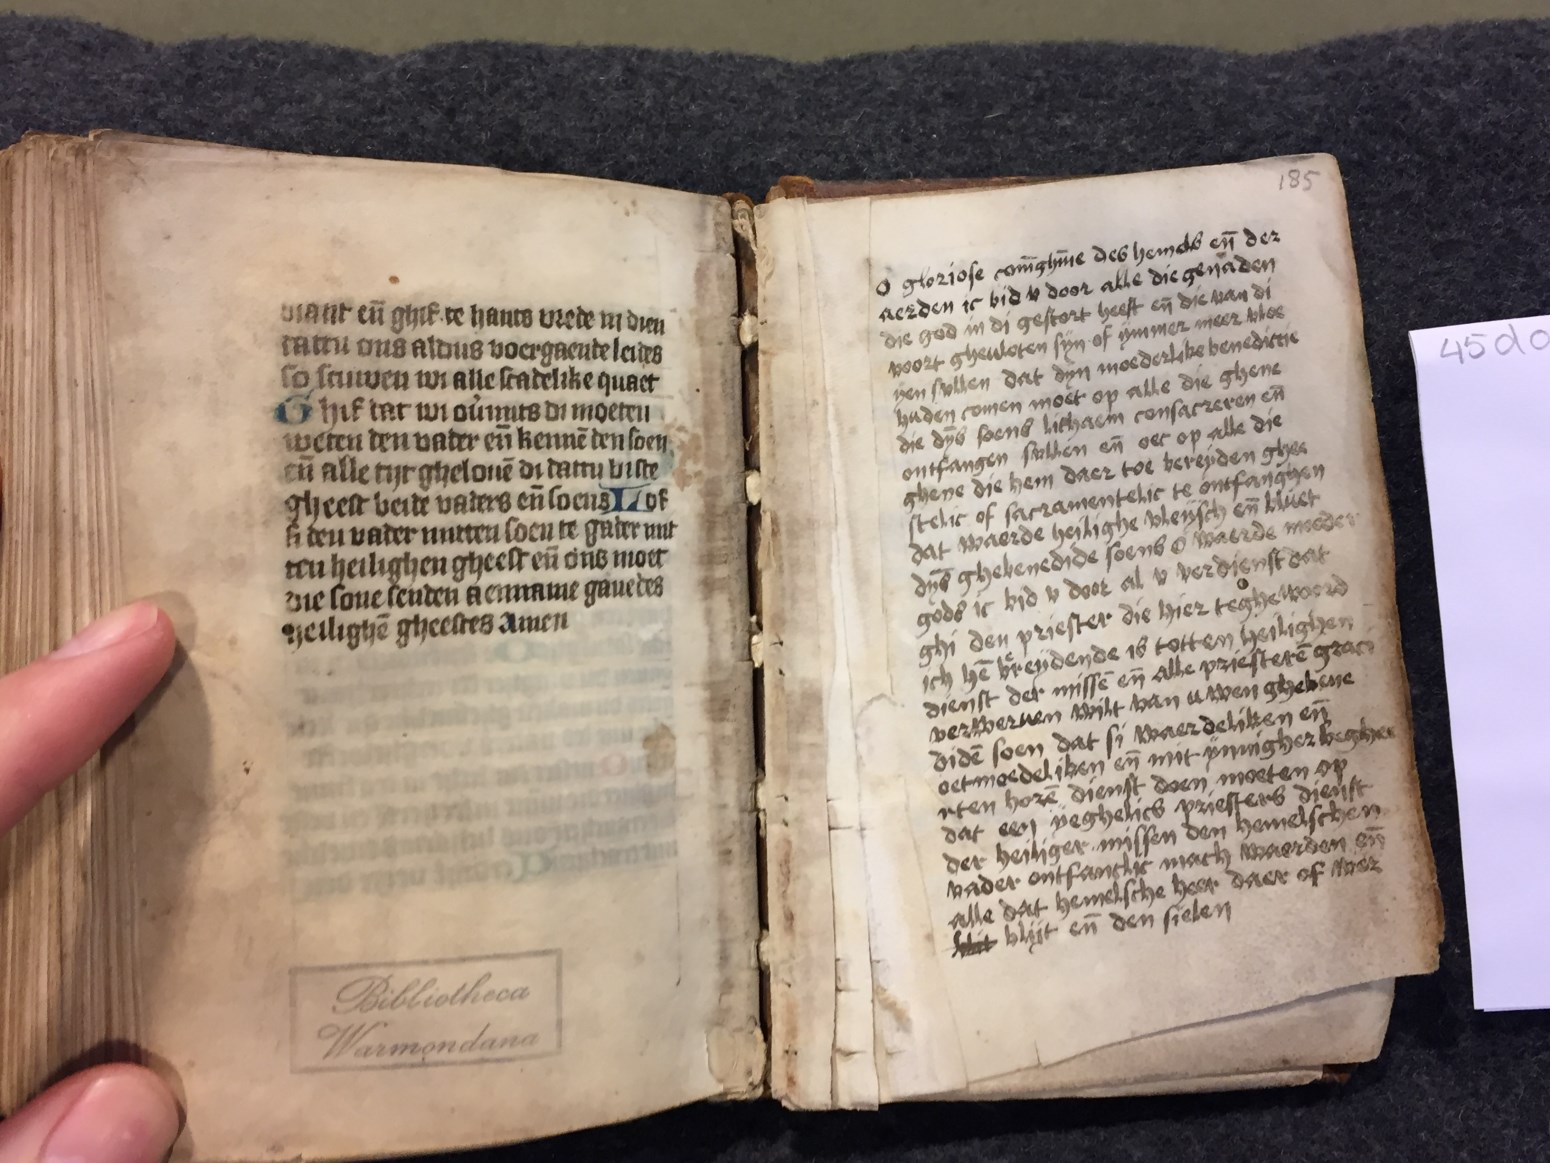 viant eñ ghif te hants vrede in dien
tattu ons aldus voergaende leides
so scuwen wi alle scadelike quaet
Ghif dat wi ou̔mits di moeten
weten den vader eñ kennē den soen
eñ alle tijt ghelouē di dattu biste
gheest beide vaders eñ soens Lof
si den vader mitten soen te gader mit
ten heilighen gheest eñ ons moet
die sone senden aenname gaue des
heilighē gheestes Amen
Bibliotheca
Warmondana
185
O gloriose des hemels eñ der
aerden ic bid v door alle die genaden
die god in di gestort heeft eñ die van di
voort ghevloten syn of ymmer meer vloe
yen sullen dat dyn moederlike benedictie
huden comen moet op alle die ghene
die dys soens lichaem consacreren eñ
ontfangen sullen eñ oec op alle die
ghene die hem daer toe bereyden ghee
stelic of sacramentelic te ontfanghen
dat waerde heilighe vleysch eñ bluet
dys ghebenedide soens O waerde moeder
gods ic bid v door al v verdienst dat
ghi den priester die hier teghewoord
ich hē breydende is totten heilighen
dienst der missē eñ alle priesterē graci
verwerven wilt van uwen ghebene
didē soen dat si waerdeliken eñ
oetmoedeliken eñ mit ynnigher beghee
rten horē dienst doen moeten op
dat een yeghelics priesters dienst
der heiliger missen den hemelschen
vader ontfanclic mach waerden eñ
alle dat hemelsche heer daer of wer
blijt eñ den sielen
45do